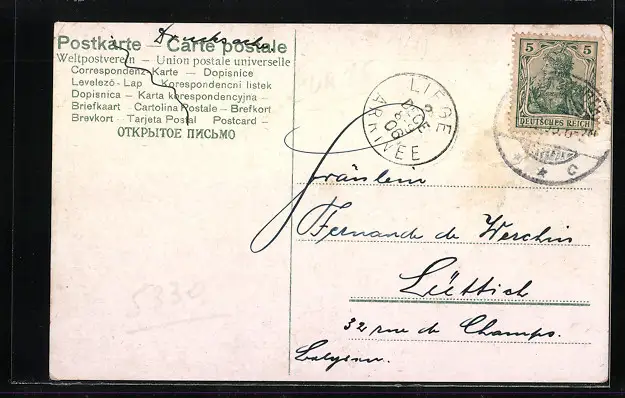 Drucksache
Postkarte – Carte postale
Weltpostverein – Union postale universelle
Correspondenz-Karte – Dopisnice
Levelező-Lap – Korespondencni listek
Dopisnica – Karta korespondencyjna –
Briefkaart – Cartolina Postale – Brefkort
Brevkort – Tarjeta Postal – Postcard –
ОТКРЫТОЕ ПИСЬМО
5 5
DEUTSCHES REICH
LIEGE
ARRIVEE
Fräulein
Fernande de Werchin
Lüttich
32 rue de Champs.
Belgien.
5330